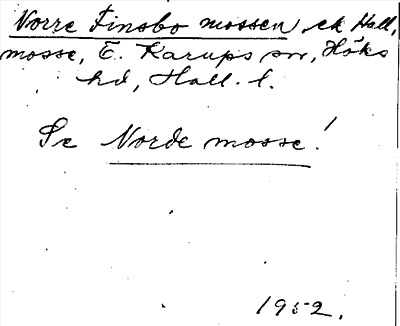 Norre Finsbo mossen ek Hall,
mosse, Ö. Karups sn, Höks
hd, Hall. l.
Se Norde mosse!
1952.